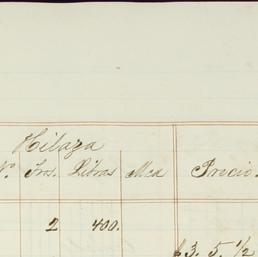 Hilaza
Nº. Frs. Libras Mca Precio.
2 400.
$3. 5. 1/2